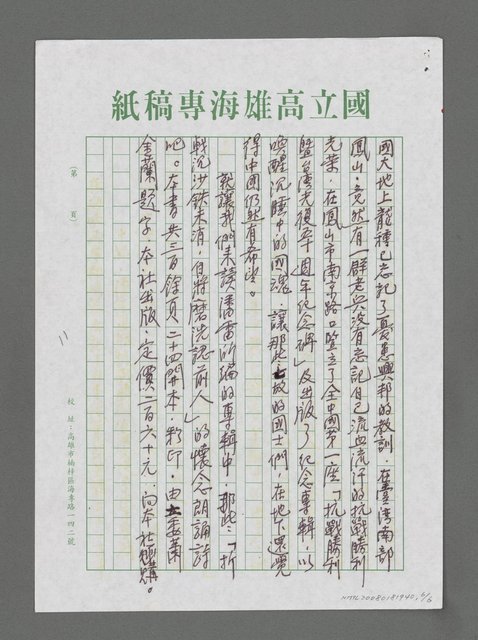 國立高雄海專稿紙
國大地上龍種已忘記了憂患興邦的教訓．在臺灣南部
鳳山．竟然有一群老兵沒有忘記自己流血流汗的抗戰勝利
光榮．在鳳山市南京路口豎立了全中國第一座「抗戰勝利
暨臺灣光復五十週年紀念碑」及出版了紀念專輯．以
喚醒沉睡中的國魂．讓那些故的國士們，在地下還覺
得中國仍然有希望。
就讓我們來讀潘雷所編的專輯中．那些「折
戟沉沙鉄未消，自將磨洗認前人」的懷念朗誦詩
吧。本書共三百餘頁．二十四開本．彩印．由姜蘭
金蘭題字．本社出版．定價二百六十元．向本社郵購。
（第　頁）
校址：高雄市楠梓區海專路一四二號
11
NMTL20080181940, 6/6